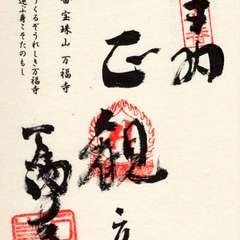 奉拝
正観音
万福寺
番 宝珠山 万福寺
くるぞうれしき万福寺
ぶ身こそたのもし